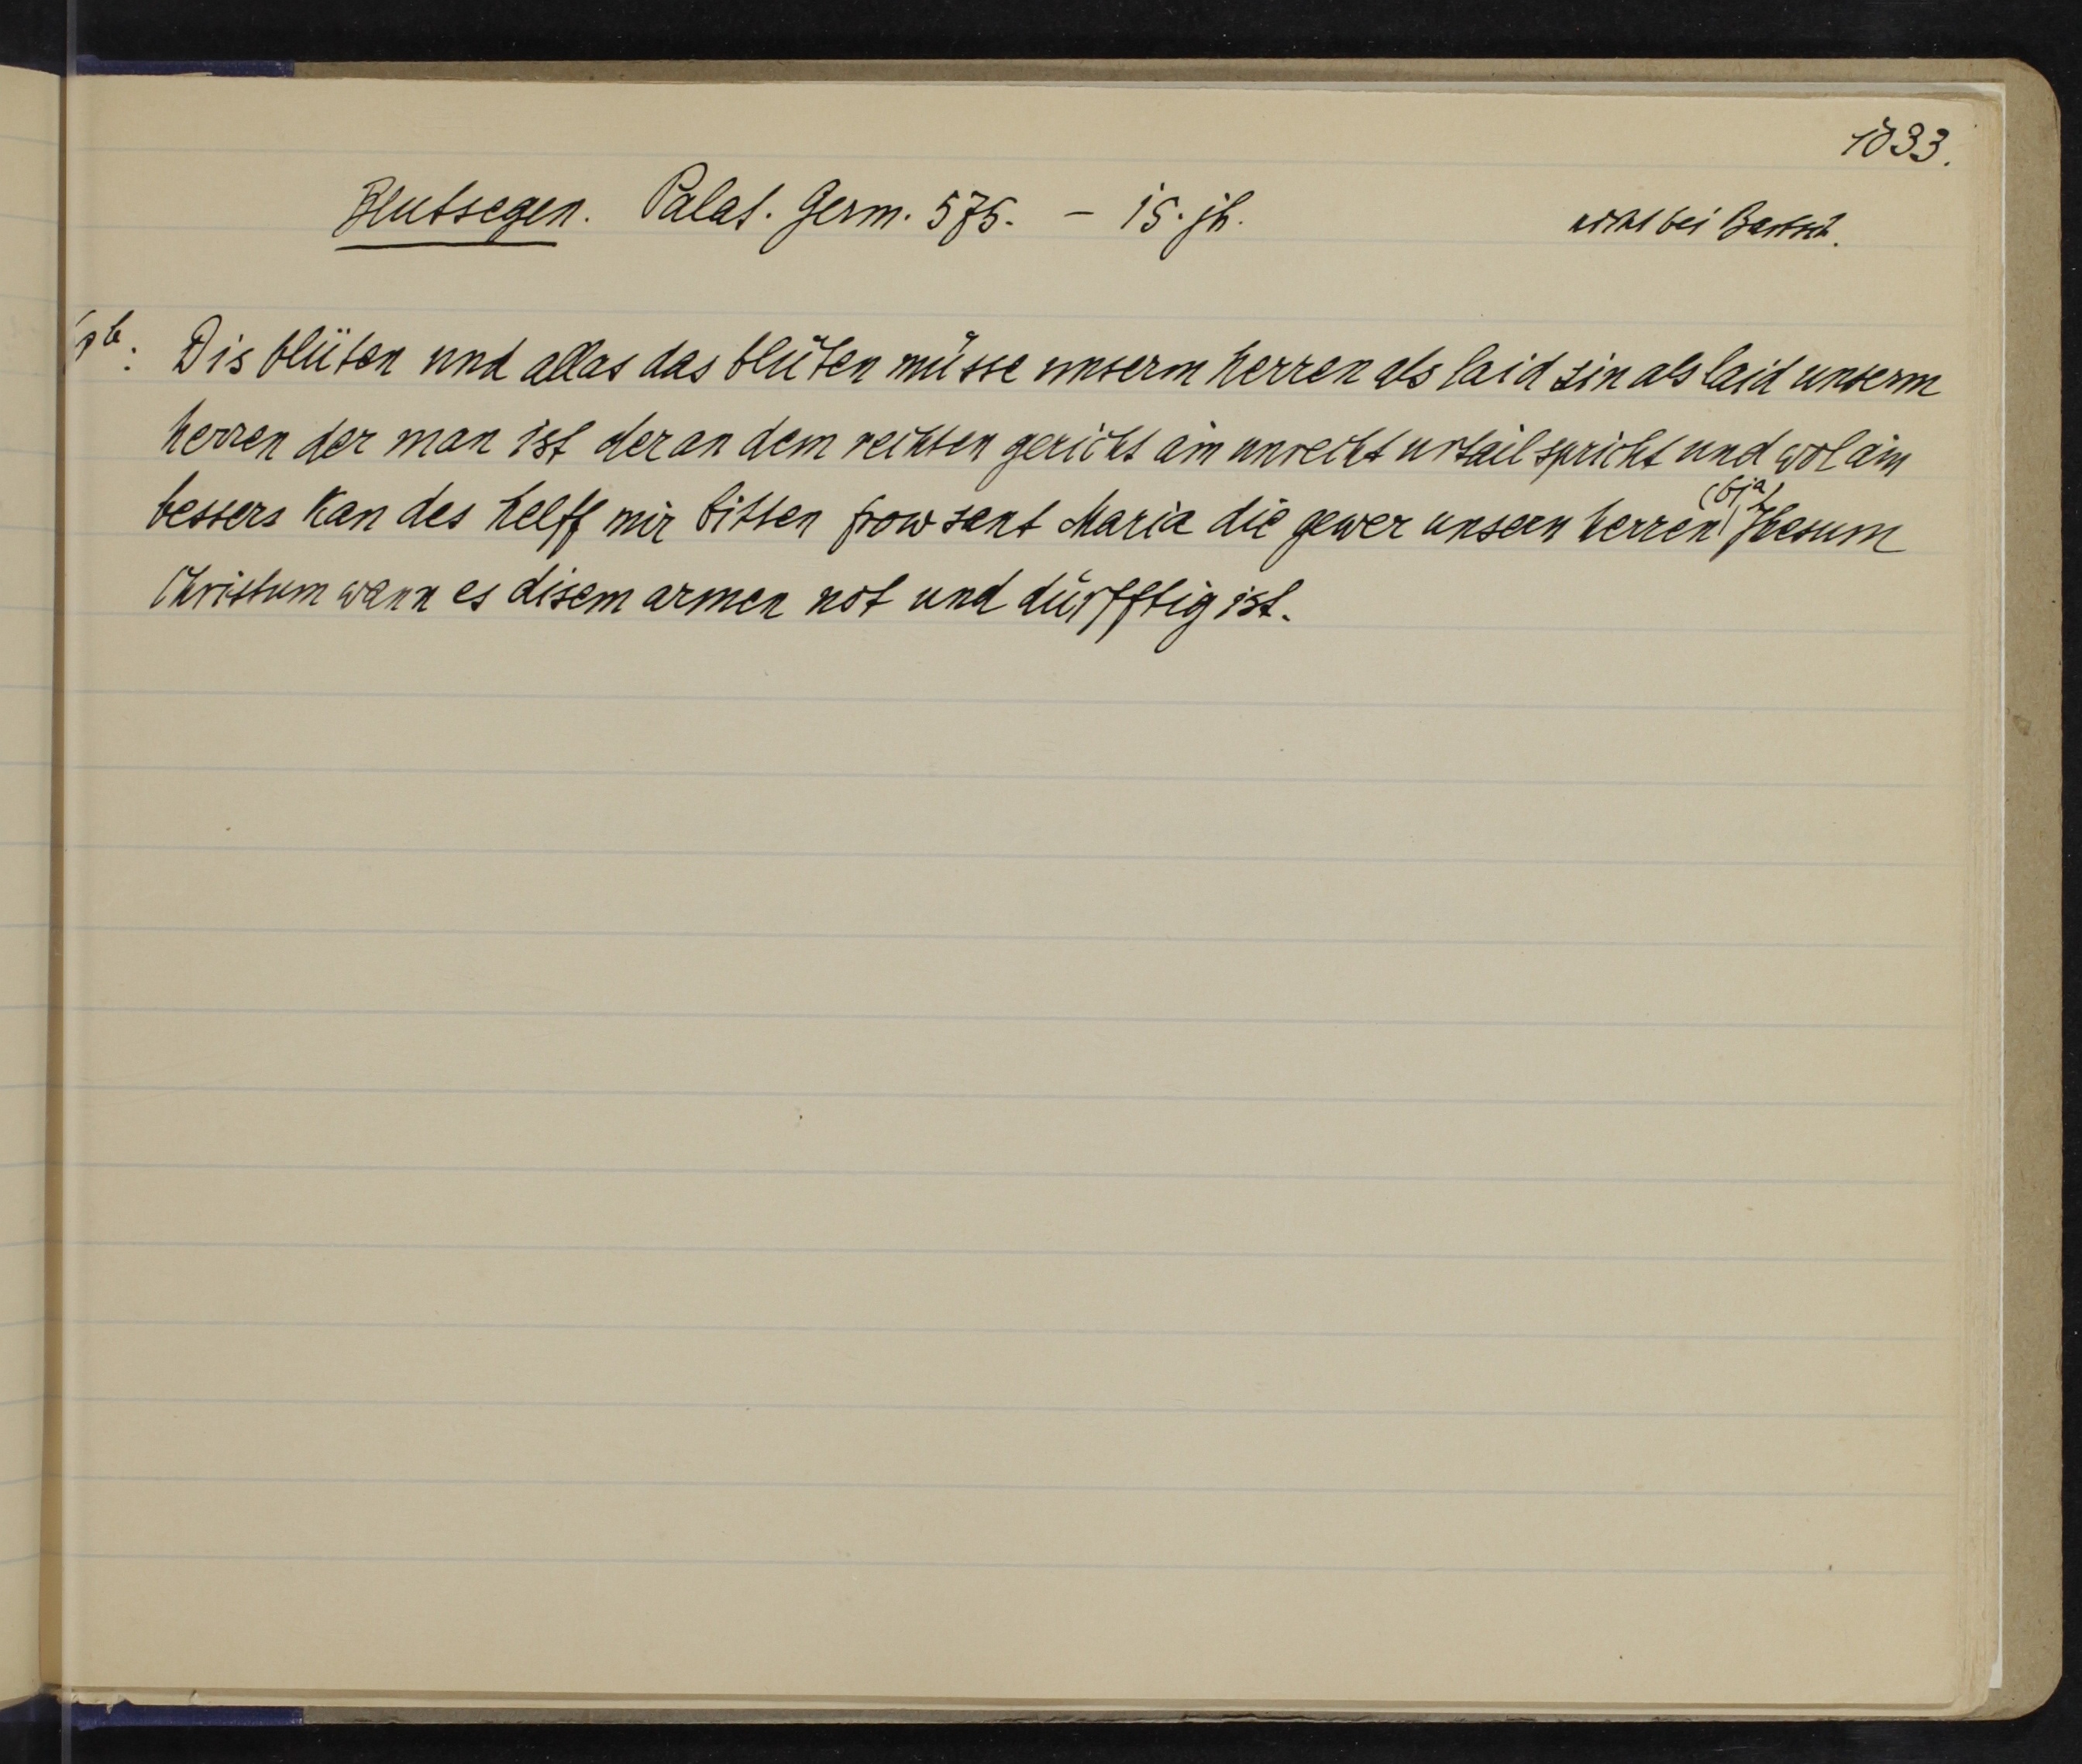 1033.
Blutsegen. Palat. Germ. 575. – 15. jh. nicht bei Bartsch.
Dis blüten und allas das blüten müsse unserm herren als laid sin als laid unserm
herren der man ist der an dem rechten gericht ain unrecht urtail spricht und wol ain
bessers kan des helff mir bitten frow sant Maria die gewer unsern herren Jhesum
Christum wann es disem armen not und dürfftig ist.